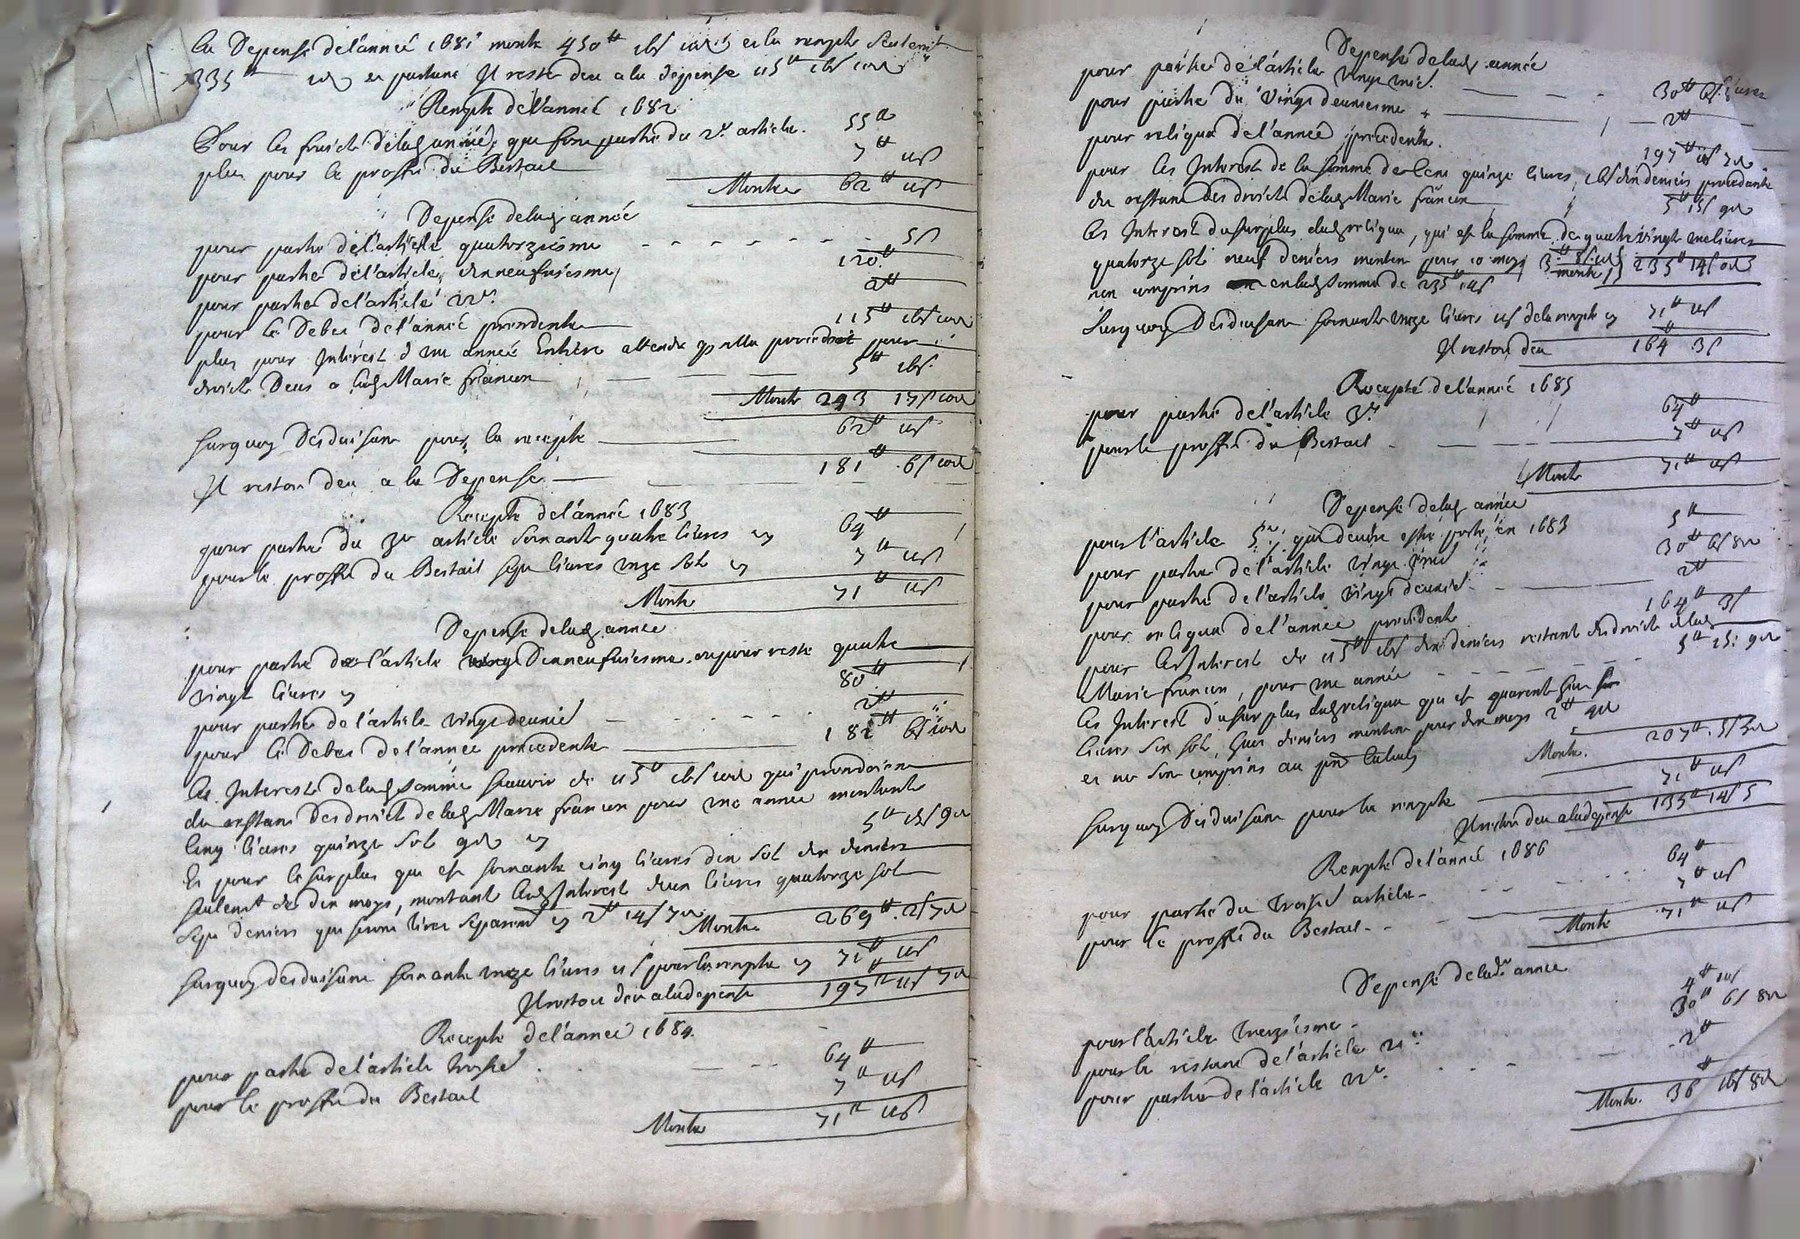 La Depense de l'année 1681 monte 450ᵗᵗ 16s 10d et la recepte seulemt
335ᵗᵗ et partant Il reste deu a la depense 115ᵗᵗ 16s 10d
Recepte de l'année 1682
Pour les fruicts de lad année, que font partie du 2e article. 55ᵗᵗ
plus pour le proffit du Bestail 7ᵗᵗ 11s
Monte 62ᵗᵗ 11s
Depense de lad année
pour partie de l'article quatorziesme 5s
pour partie de l'article dixneufviesme 120ᵗᵗ
pour partie de l'article 22e. 2ᵗᵗ
pour le Debet de l'année precedente 115ᵗᵗ 16s 10d
plus pour Interest d'une année Entiere attendu qu'elle procedoit pour
droicts Deus a lad Marie francon 5ᵗᵗ 16s.
Monte 243 17s 10d
surquoy Desduisant pour la recepte 62ᵗᵗ 11s
Il reston deu a la Depense 181ᵗᵗ 6s 10d
Recepte de l'année 1683
pour partie du 3e article soixante quatre livres cy 64ᵗᵗ
pour le proffit du Bestail sept livres unze sols cy 7ᵗᵗ 11s
Monte 71ᵗᵗ 11s
Depense de lad année
pour partie de l'article Dixneufviesme ou pour reste quatre
vingt livres cy 80ᵗᵗ
pour partie de l'article vingtdeuxie 2ᵗᵗ
pour le Debet de l'année precedente 181ᵗᵗ 6s 10d
Les Interests de lad somme scavoir de 115ᵗᵗ 16s 10d qui procedoient
du restant Des droicts de lad Marie francon pour une année montent
cinq livres quinze sols 9d cy 5ᵗᵗ 15s 9d
Et pour le surplus qui est soixante cinq livres dix sols dix deniers
seulemt de dix moys, montant lesd Interests deux livres quatorze sols
sept deniers qui seront tirés separemt cy 2ᵗᵗ 14s 7d Monte 269ᵗᵗ 2s 7d
surquoy desduisant soixante unze livres 11s pour la recepte cy 71ᵗᵗ 11s
Il reston deu a la depense 197ᵗᵗ 11s 7d
Recepte de l'année 1684.
pour partie de l'article troisie 64ᵗᵗ
pour le proffit du Bestail 7ᵗᵗ 11s
Monte 71ᵗᵗ 11s
Depense de lad année
pour partie de l'article vingt unie. 30ᵗᵗ 6s
pour partie du vingt deuxiesme 2ᵗᵗ
pour reliqua de l'année precedente. 197ᵗᵗ 11s 7d
pour les Interest de la somme de Cent quinze livres 16s dix deniers procedante
du restant des droicts de lad Marie francon 5ᵗᵗ 15s 9d
les Interest du surplus dud reliqua, qui est la somme de quatrevingt une livres
quatorze sols neuf deniers montent pour 10 moys 3ᵗᵗ
non comprins en lad somme de 235ᵗᵗ 14s monte 235ᵗᵗ 14s
surquoy Desduisant soixante unze livres 11s de la recepte cy 71ᵗᵗ 11s
Il reston deu 164ᵗᵗ 3s
Recepte de l'année 1685
pour partie de l'article 3e 64ᵗᵗ
pour le proffit du Bestail 7ᵗᵗ 11s
Monte 71ᵗᵗ 11s
Depense de lad année
pour l'article 5e. qui devoit estre porté en 1683 5ᵗᵗ
pour partie de l'article vingt unie 30ᵗᵗ 6s 8d
pour partie de l'article vingt deuxie 2ᵗᵗ
pour reliqua de l'année precedente 164ᵗᵗ 3s
pour les Interest de 115ᵗᵗ 16s dix deniers restant des droicts de lad
Marie francon, pour une année 5ᵗᵗ 15s 9d
les Interest du surplus dud reliqua qui est quarante huit
livres six sols huit deniers montent pour dix moys 2ᵗᵗ 9d
et ne son comprins au pnt Calcul Monte. 207ᵗᵗ 5s 5d
surquoy Desduisant pour la recepte 71ᵗᵗ 11s
Il reston deu a la depense 135ᵗᵗ 14s 5
Recepte de l'année 1686
pour partie du troisie article 64ᵗᵗ
pour le proffit du Bestail 7ᵗᵗ 11s
Monte 71ᵗᵗ 11s
Depense de lade année
pour l'article treziesme 4ᵗᵗ 10s
pour le restant de l'article 21e 30ᵗᵗ 6s 8d
pour partie de l'article 22e. 2ᵗᵗ
Monte. 36ᵗᵗ 16s 8d